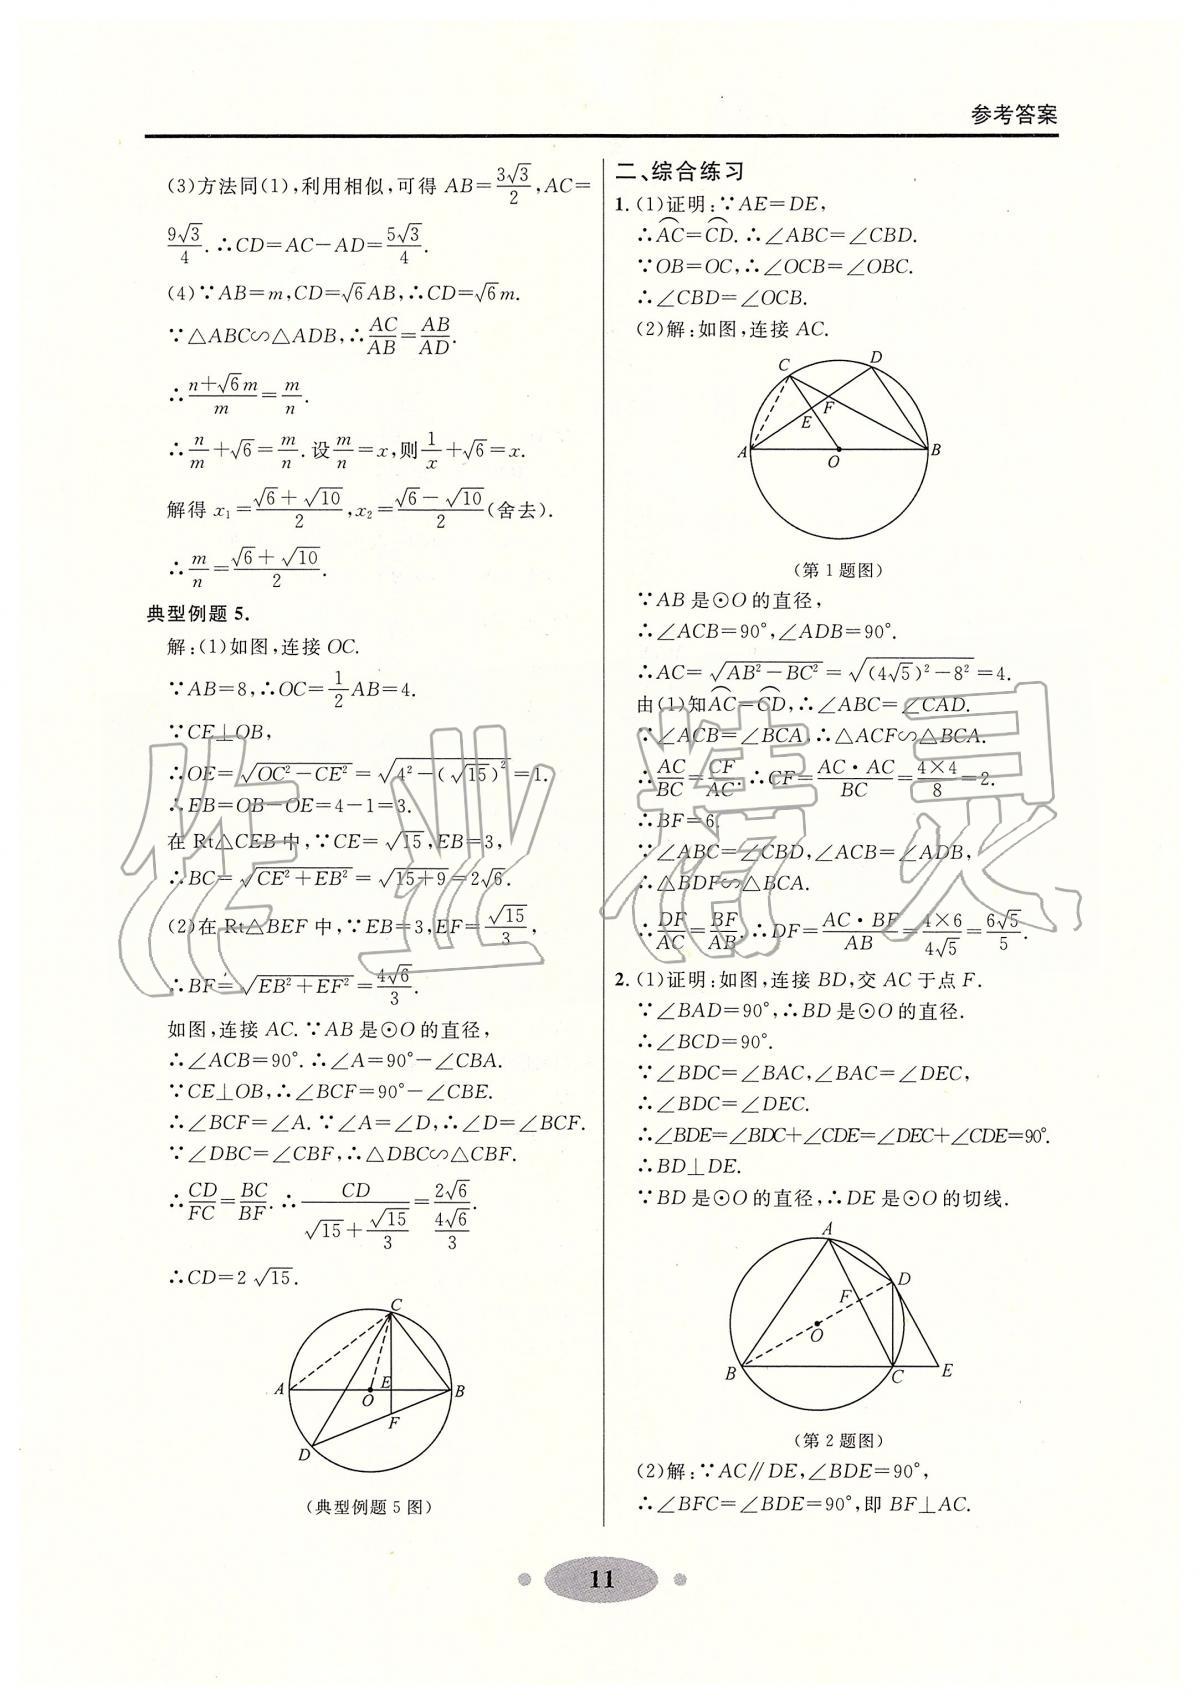 参考答案
(3)方法同(1),利用相似,可得 AB=3√3/2,AC=
9√3/4.∴CD=AC-AD=5√3/4.
(4)∵AB=m,CD=√6AB,∴CD=√6m.
∵△ABC∽△ADB,∴AC/AB=AB/AD.
∴(n+√6m)/m=m/n.
∴n/m+√6=m/n.设m/n=x,则1/x+√6=x.
解得 x₁=(√6+√10)/2,x₂=(√6-√10)/2(舍去).
∴m/n=(√6+√10)/2.
典型例题 5.
解:(1)如图,连接 OC.
∵AB=8,∴OC=1/2AB=4.
∵CE⊥OB,
∴OE=√(OC²-CE²)=√(4²-(√15)²)=1.
∴EB=OB-OE=4-1=3.
在 Rt△CEB 中,∵CE=√15,EB=3,
∴BC=√(CE²+EB²)=√(15+9)=2√6.
(2)在 Rt△BEF 中,∵EB=3,EF=√15/3,
∴BF=√(EB²+EF²)=4√6/3.
如图,连接 AC.∵AB 是⊙O 的直径,
∴∠ACB=90°.∴∠A=90°-∠CBA.
∵CE⊥OB,∴∠BCF=90°-∠CBE.
∴∠BCF=∠A.∵∠A=∠D,∴∠D=∠BCF.
∵∠DBC=∠CBF,∴△DBC∽△CBF.
∴CD/FC=BC/BF.∴CD/(√15+√15/3)=2√6/(4√6/3).
∴CD=2√15.
C
A
E
O
B
F
D
(典型例题 5 图)
二、综合练习
1.(1)证明:∵AE=DE,
∴A͡C=C͡D.∴∠ABC=∠CBD.
∵OB=OC,∴∠OCB=∠OBC.
∴∠CBD=∠OCB.
(2)解:如图,连接 AC.
C
D
F
E
A
O
B
(第 1 题图)
∵AB 是⊙O 的直径,
∴∠ACB=90°,∠ADB=90°.
∴AC=√(AB²-BC²)=√((4√5)²-8²)=4.
由(1)知A͡C=C͡D,∴∠ABC=∠CAD.
∵∠ACB=∠BCA,∴△ACF∽△BCA.
∴AC/BC=CF/AC.∴CF=AC·AC/BC=4×4/8=2.
∴BF=6.
∵∠ABC=∠CBD,∠ACB=∠ADB,
∴△BDF∽△BCA.
∴DF/AC=BF/AB.∴DF=AC·BF/AB=4×6/4√5=6√5/5.
2.(1)证明:如图,连接 BD,交 AC 于点 F.
∵∠BAD=90°,∴BD 是⊙O 的直径.
∴∠BCD=90°.
∵∠BDC=∠BAC,∠BAC=∠DEC,
∴∠BDC=∠DEC.
∴∠BDE=∠BDC+∠CDE=∠DEC+∠CDE=90°.
∴BD⊥DE.
∵BD 是⊙O 的直径,∴DE 是⊙O 的切线.
A
D
F
O
B
C
E
(第 2 题图)
(2)解:∵AC∥DE,∠BDE=90°,
∴∠BFC=∠BDE=90°,即 BF⊥AC.
11
作业精灵